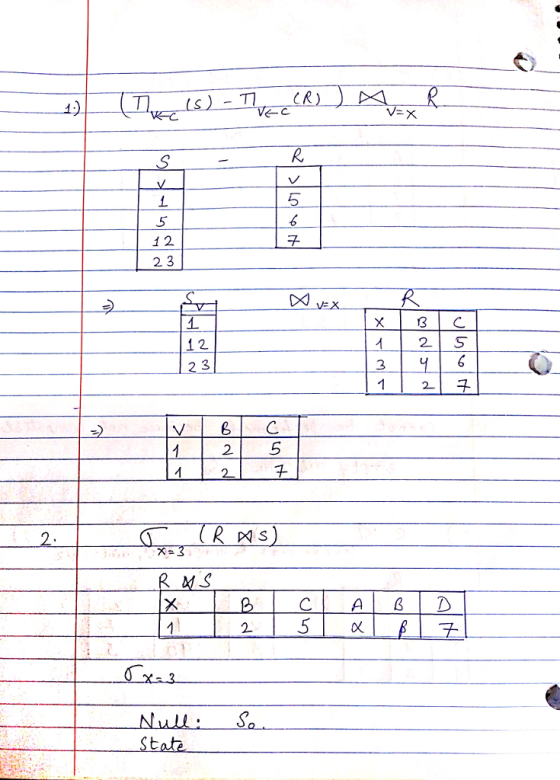 1.) (Π V←C (S) – Π V←C (R)) ⋈ V=X R
S – R
V V
1 5
5 6
12 7
23
⇒ S V ⋈ V=X R
1 X B C
12 1 2 5
23 3 4 6
1 2 7
⇒ V B C
1 2 5
1 2 7
2. σ x=3 (R ⋈ S)
R ⋈ S
X B C A B D
1 2 5 α β 7
σ x=3
Null: So.
State